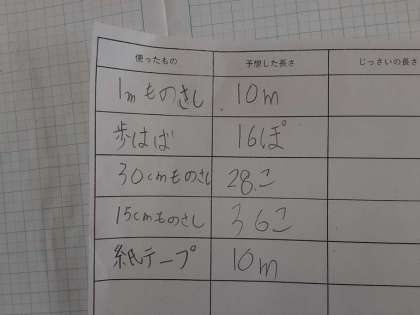 使ったもの 予想した長さ じっさいの長さ
1mものさし 10m
歩はば 16ぽ
30cmものさし 28こ
15cmものさし 36こ
紙テープ 10m